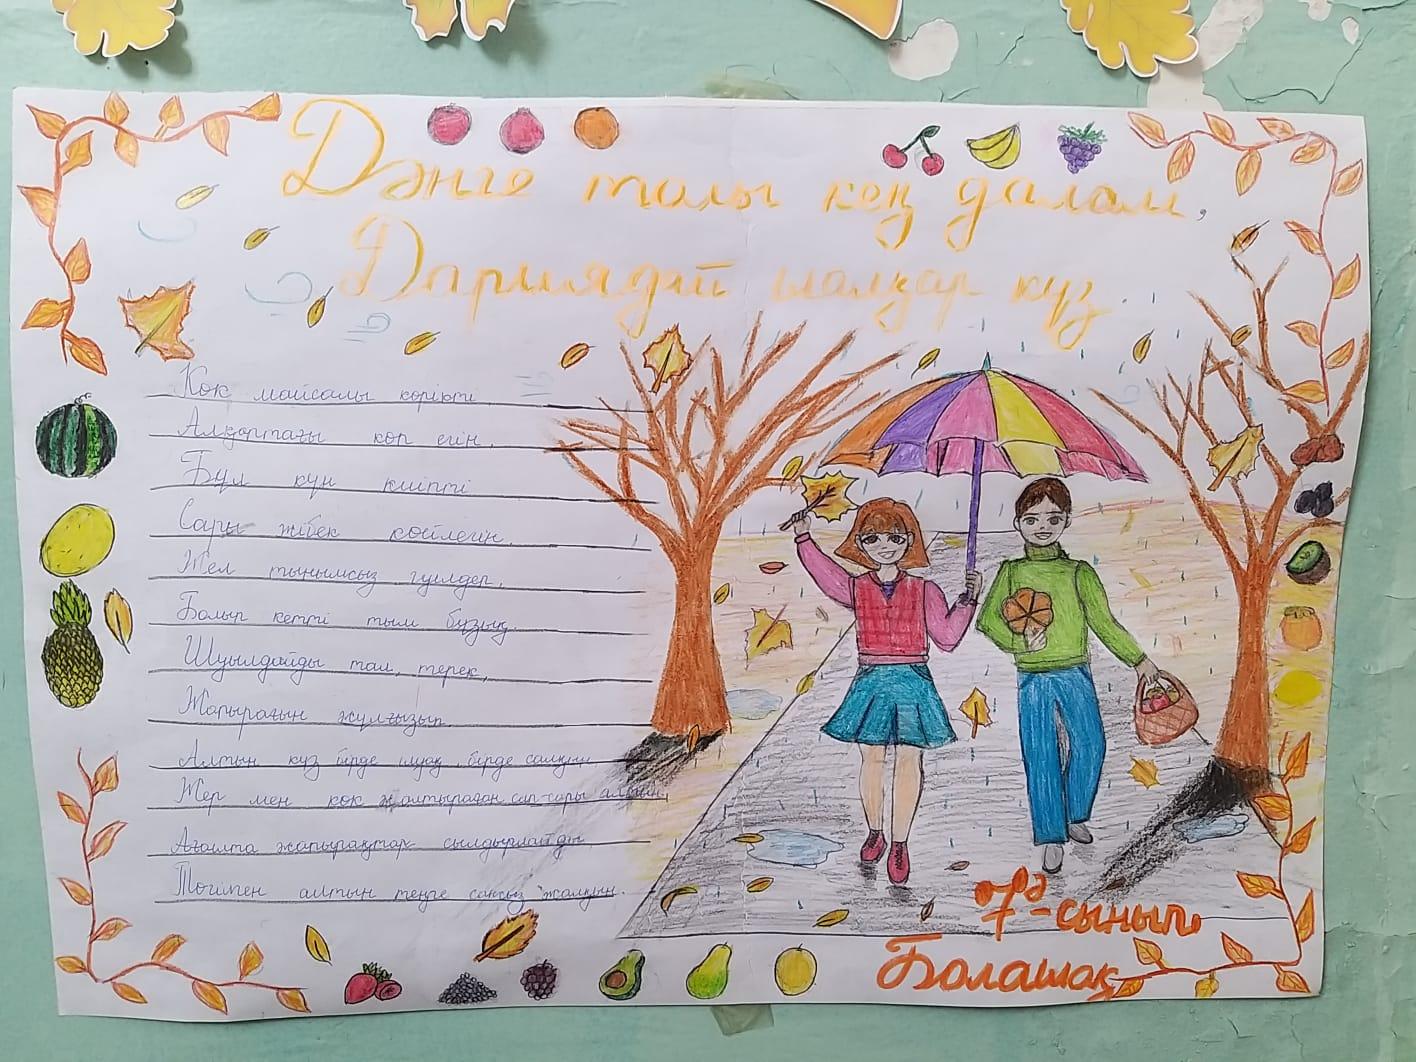 Дәнге толы кең далам,
Дариядай шалқар күз.
Көк майсалы көрікті
Алқаптағы көп егін.
Бұл күн киіпті
Сары жібек көйлегін.
Жел тынымсыз гуілдеп,
Болып кетті тым бұзық.
Шуылдайды тал, терек,
Жапырағын жұлғызып.
Алтын күз бірде шуақ, бірде салқын
Жер мен көк жалтыраған сап-сары алтын,
Ағашта жапырақтар сылдырлайды
Төгілген алтын теңге сансыз жалқын.
7"ә-сынып
Болашақ